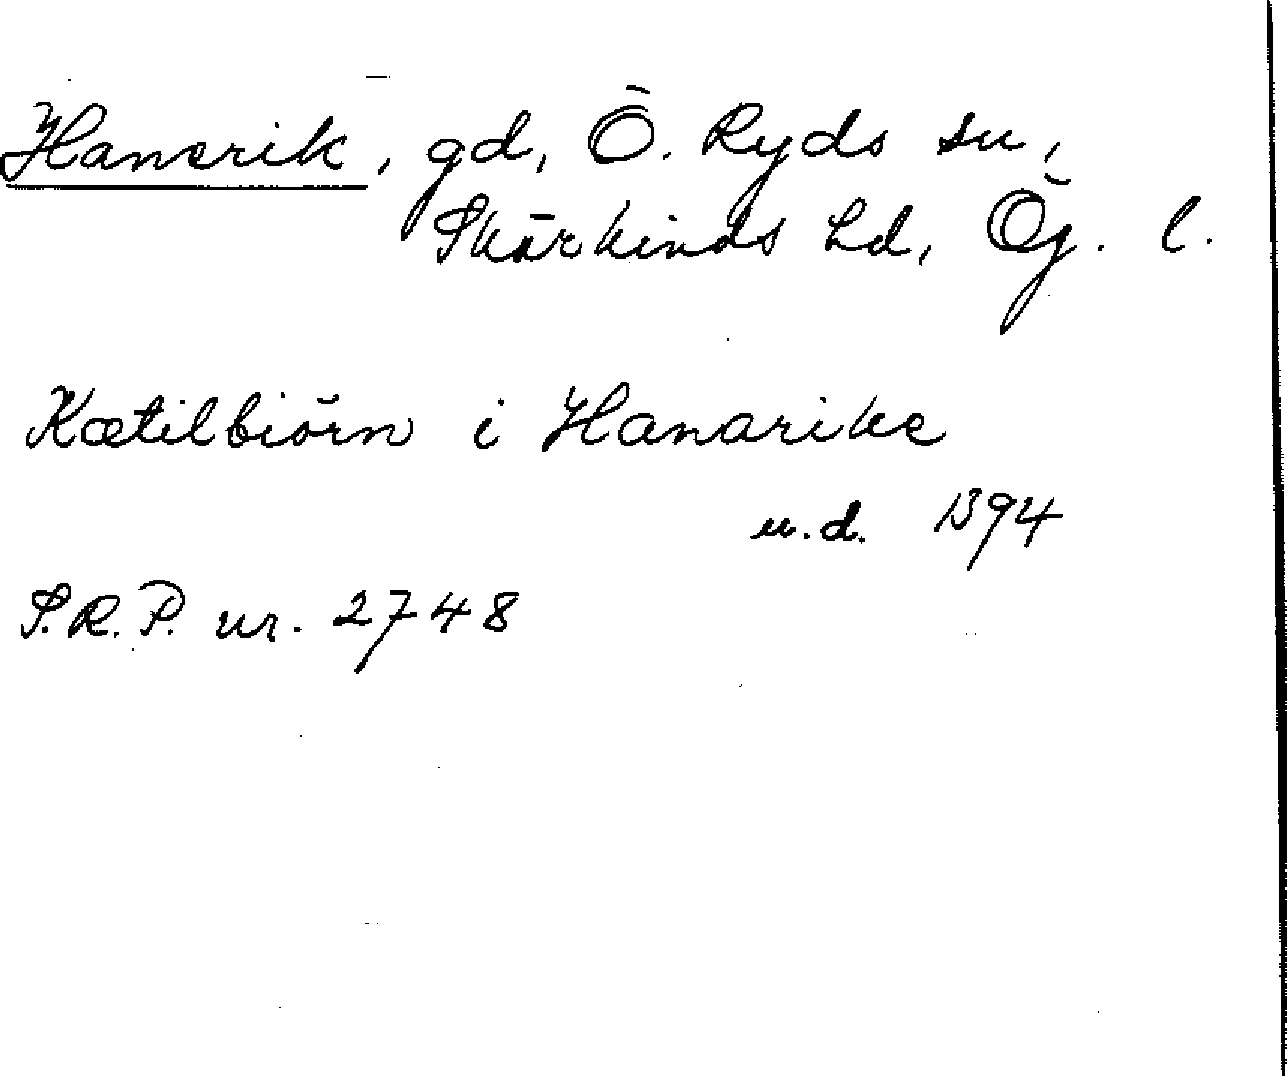 Hanerik, gd, Ö. Ryds sn,
Skärkinds hd, Ög. l.
Kætilbiörn i Hanarike
u.d. 1394
S.R.P. nr. 2748